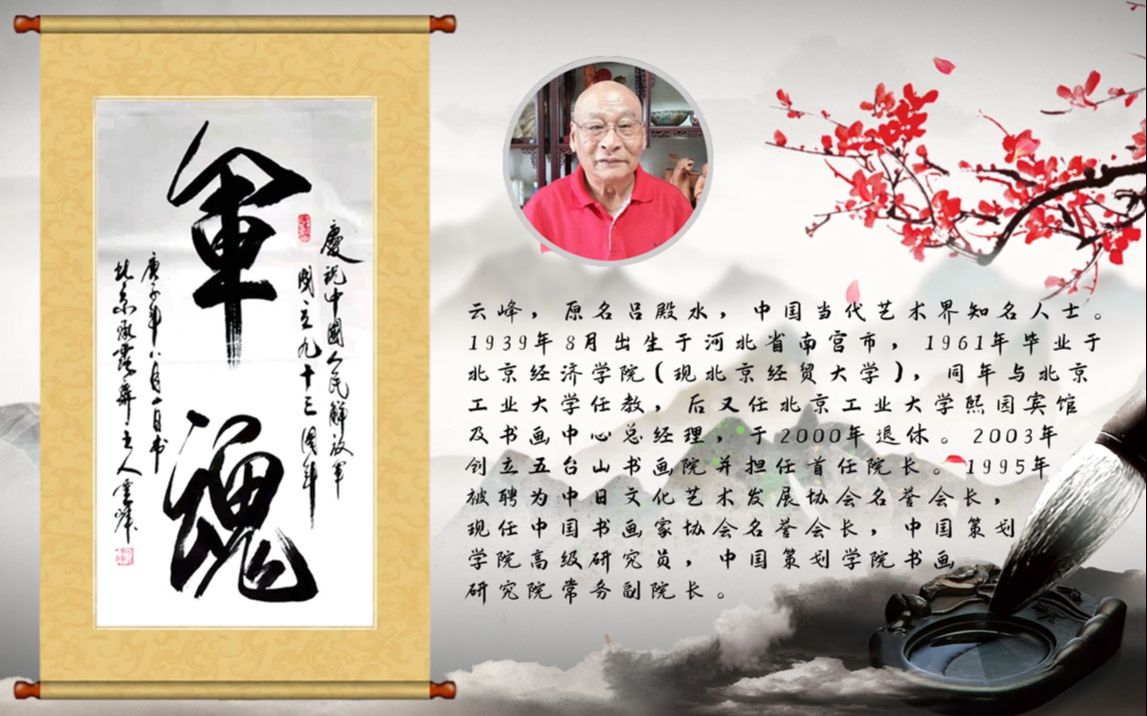 軍魂
慶祝中國人民解放軍
國立九十三周年
庚子年八月一日书
北京
主人雲峰
云峰，原名吕殿水，中国当代艺术界知名人士。
1939年8月出生于河北省南宫市，1961年毕业于
北京经济学院(现北京经贸大学)，同年与北京
工业大学任教，后又任北京工业大学熙园宾馆
及书画中心总经理，于2000年退休。2003年
创立五台山书画院并担任首任院长。1995年
被聘为中日文化艺术发展协会名誉会长，
现任中国书画家协会名誉会长，中国策划
学院高级研究员，中国策划学院书画
研究院常务副院长。